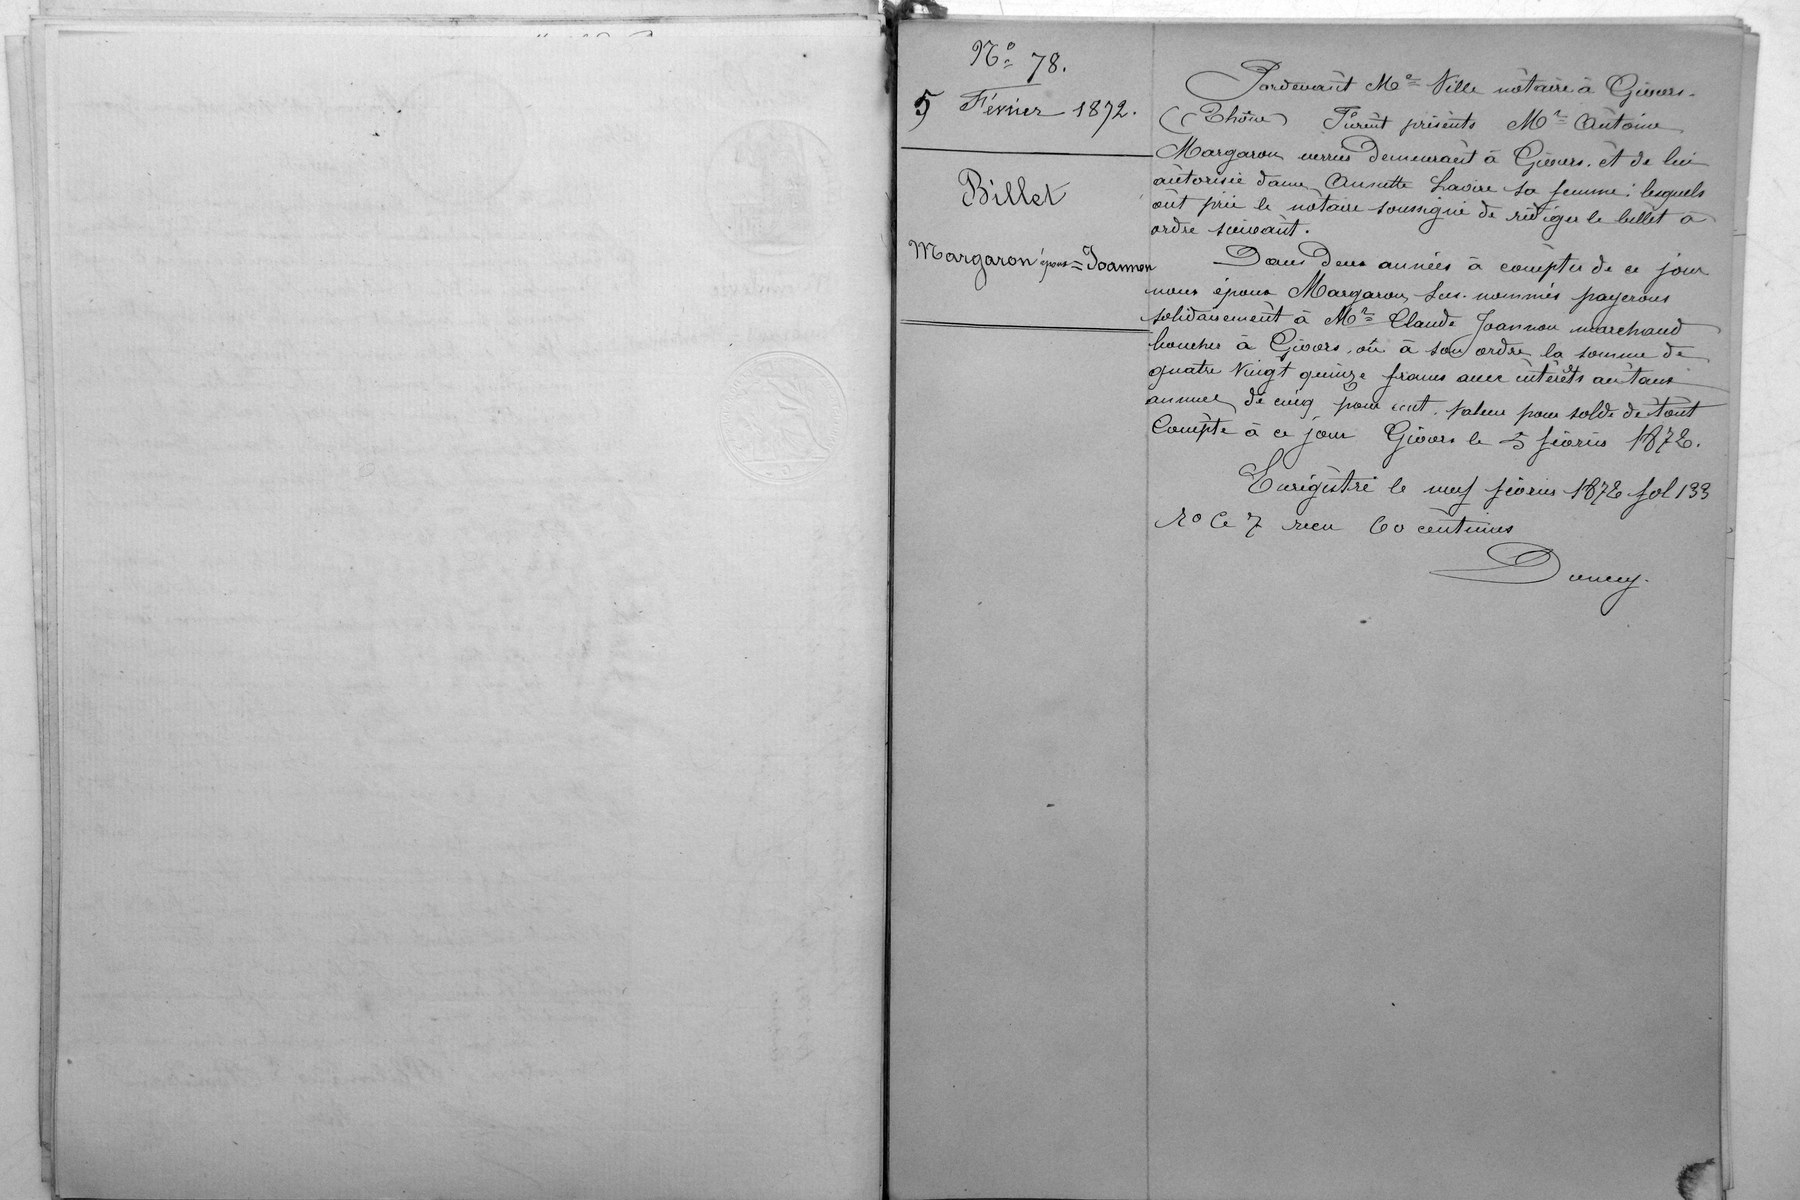 N° 78.
5 Février 1872.
Billet
Margaron époux = Joannon
Pardevant Me Ville notaire à Givors.
(Rhône) Furent présents Mr Antoine
Margaron verrier Demeurant à Givors. et de lui
autorisée dame Annette Lavire sa femme; lesquels
ont prié le notaire soussigné de rédiger le billet à
ordre suivant.
Dans Deux années à compter de ce jour
nous époux Margaron, sus-nommés payerons
solidairement à Mr Claude Joannon marchand
boucher à Givors, ou à son ordre la somme de
quatre vingt quinze francs avec intérêts au taux
annuel de cinq pour cent. Valeur pour solde de tout
Compte à ce jour Givors le 5 février 1872.
Enregistré le neuf février 1872 fol 133
Ro Ce 7 reçu 60 centimes